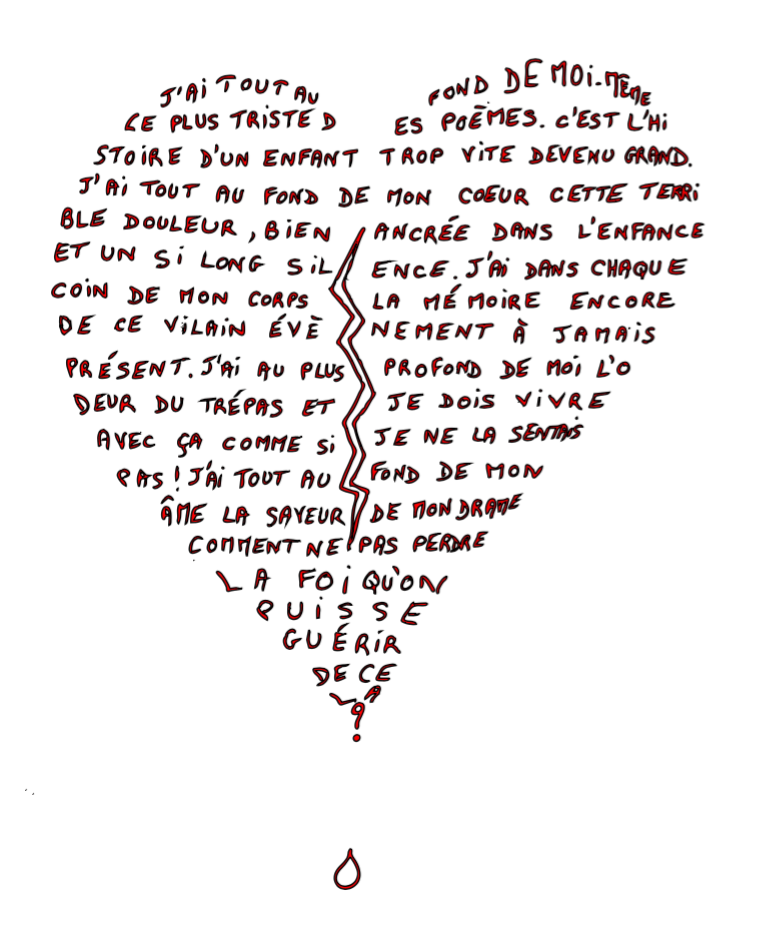 J'AI TOUT AU FOND DE MOI-MÊME
CE PLUS TRISTE DES POÈMES. C'EST L'HI
STOIRE D'UN ENFANT TROP VITE DEVENU GRAND.
J'AI TOUT AU FOND DE MON COEUR CETTE TERRI
BLE DOULEUR, BIEN ANCRÉE DANS L'ENFANCE
ET UN SI LONG SILENCE. J'AI DANS CHAQUE
COIN DE MON CORPS LA MÉMOIRE ENCORE
DE CE VILAIN ÉVÈNEMENT À JAMAIS
PRÉSENT. J'AI AU PLUS PROFOND DE MOI L'O
DEUR DU TRÉPAS ET JE DOIS VIVRE
AVEC ÇA COMME SI JE NE LA SENTAIS
PAS! J'AI TOUT AU FOND DE MON
ÂME LA SAVEUR DE MON DRAME
COMMENT NE PAS PERDRE
LA FOI QU'ON
PUISSE
GUÉRIR
DE CE
LA
?